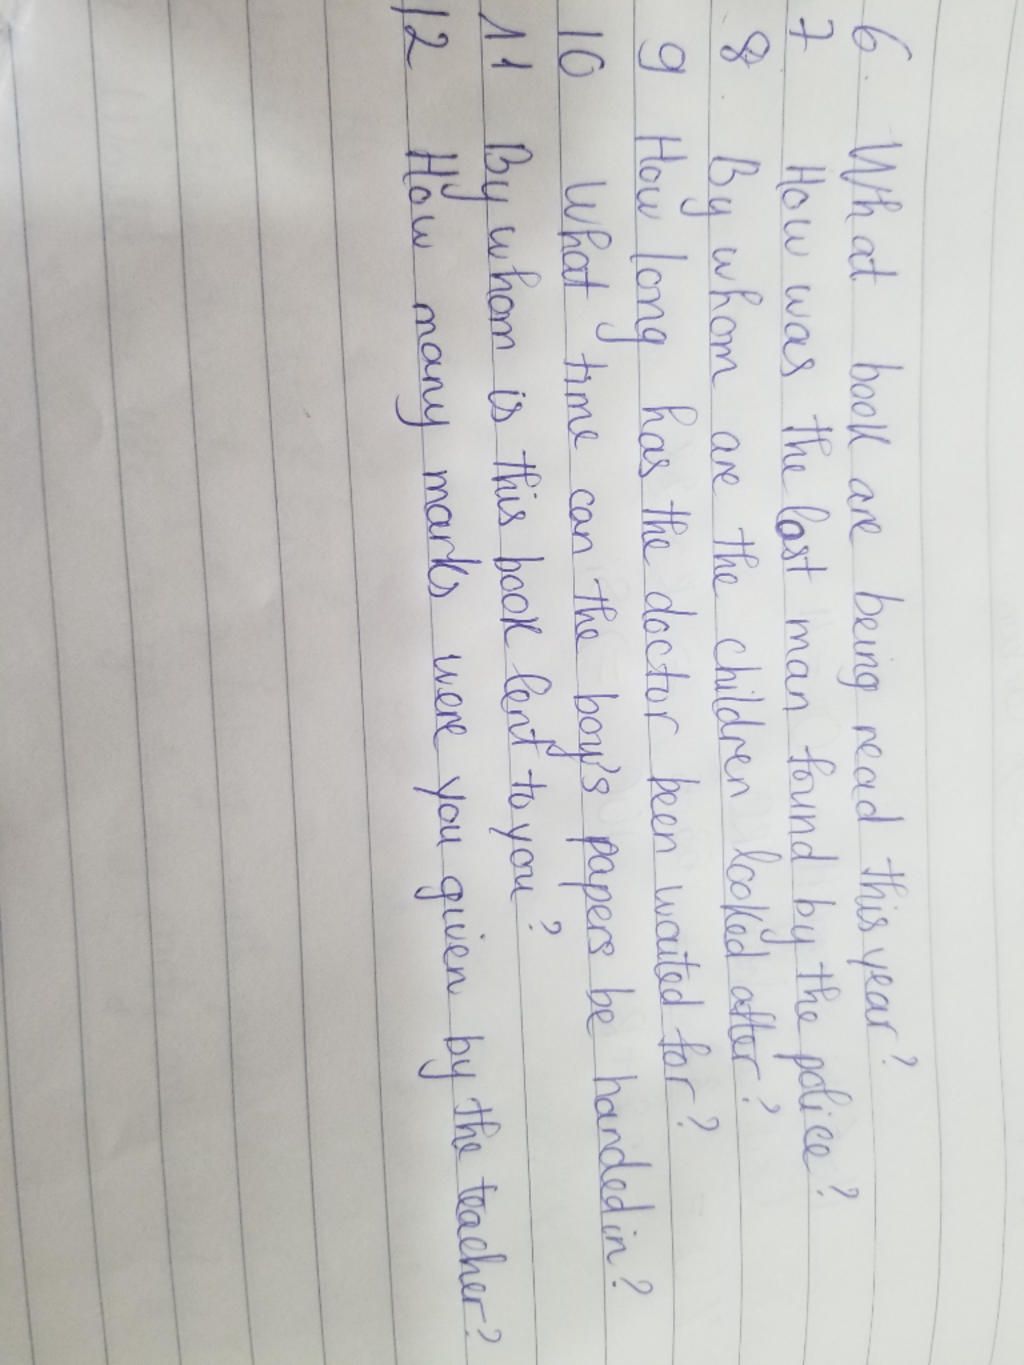 6. What book are being read this year?
7 How was the lost man found by the police?
8. By whom are the children looked after?
9 How long has the doctor been waited for?
10 What time can the boy's papers be handed in?
11 By whom is this book lent to you?
12 How many marks were you given by the teacher?